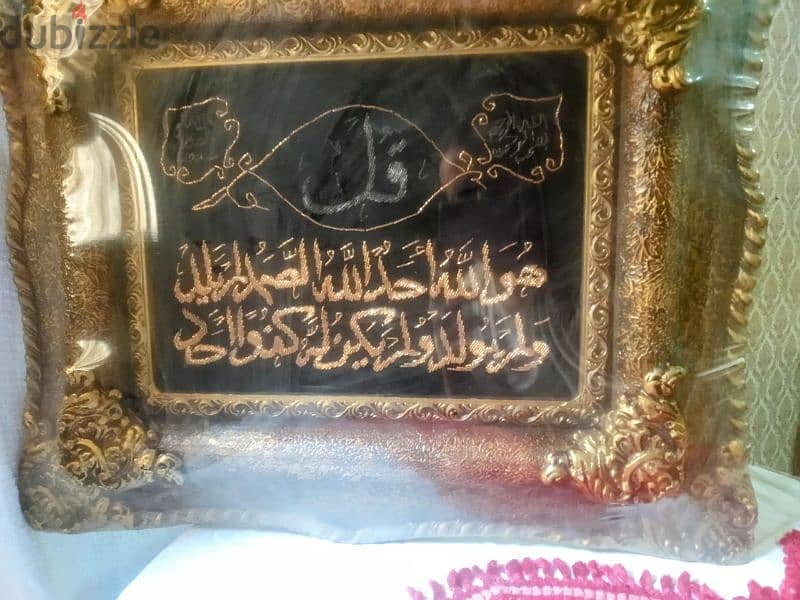 dubizzle
قل
هُوَ اللَّهُ أَحَدٌ اللَّهُ الصَّمَدُ لم يلد
وَلم يُولَد وَلم يكن لَّه كفُوًا احد